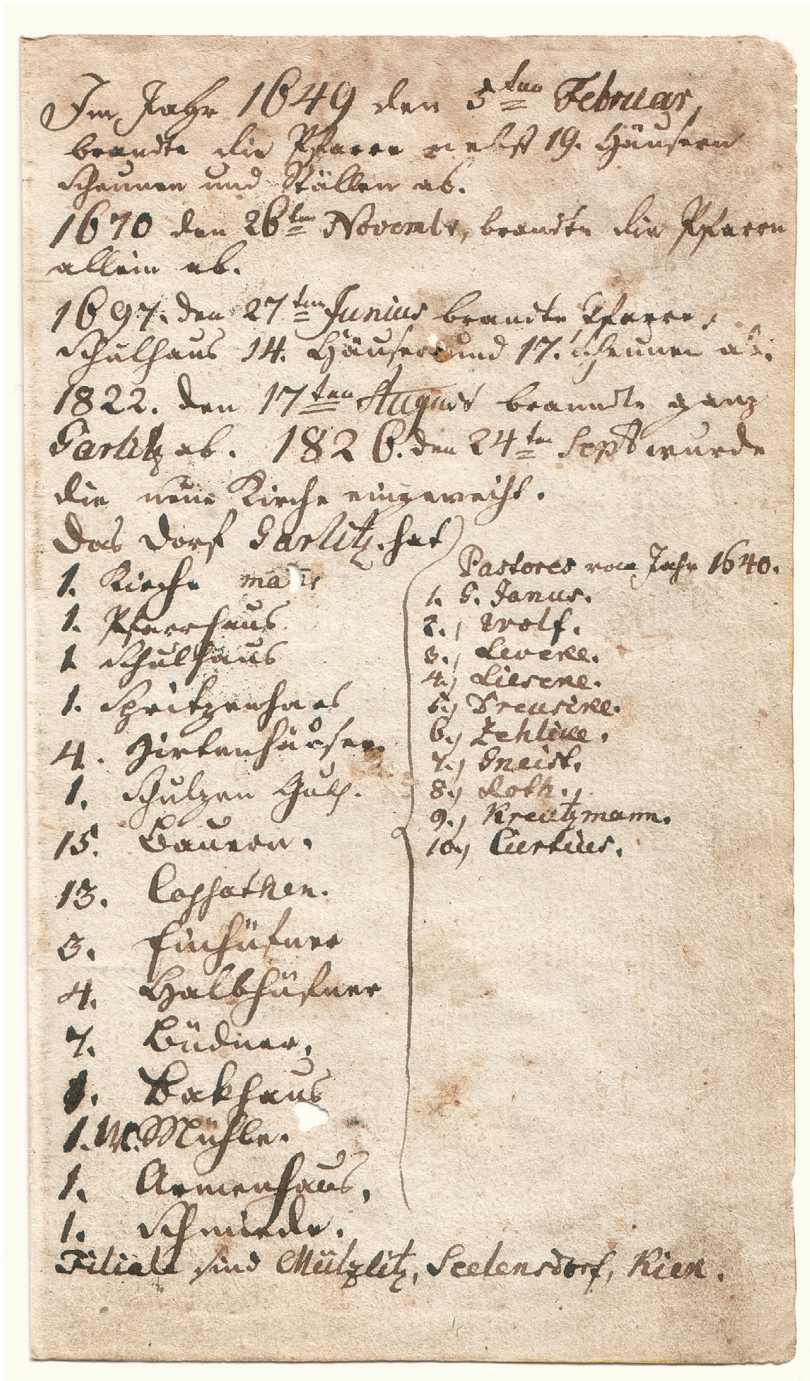 Im Jahr 1649 den 5ten Februar,
brandte die Pfarre nebst 19. Häusern
Scheunen und Ställen ab.
1670 den 26ten Novembr, brandte die Pfarre
allein ab.
1697. den 27ten Junius brandte Pfarre,
Schulhaus 14. Häuser und 17. Scheunen ab.
1822. den 17ten August brandte ganz
Garlitz ab. 1826. den 24ten Sept wurde
die neue Kirche eingeweiht.
Das Dorf Garlitz hat
1. Kirche mater
1. Pfarrhaus
1 Schulhaus
1. Spritzenhaus
4. Hirtenhäuser
1. Schulzen Guth.
15. Bauern.
13. Cossathen.
3. Einhüfner
4. Halbhüfner
7. Büdner.
1. Bakhaus
1. W. Mühle.
1. Armenhaus.
1. Schmiede.
Pastores vom Jahr 1640.
1. G. Janus.
2., Wolf.
3., Levere.
4., Liesere.
5., Preusere.
6., Zehlicke.
7., Gneist.
8., Roth.
9., Kreutzmann.
10., Curtius.
Filiale sind Mützlitz, Seelensdorf, Riek.